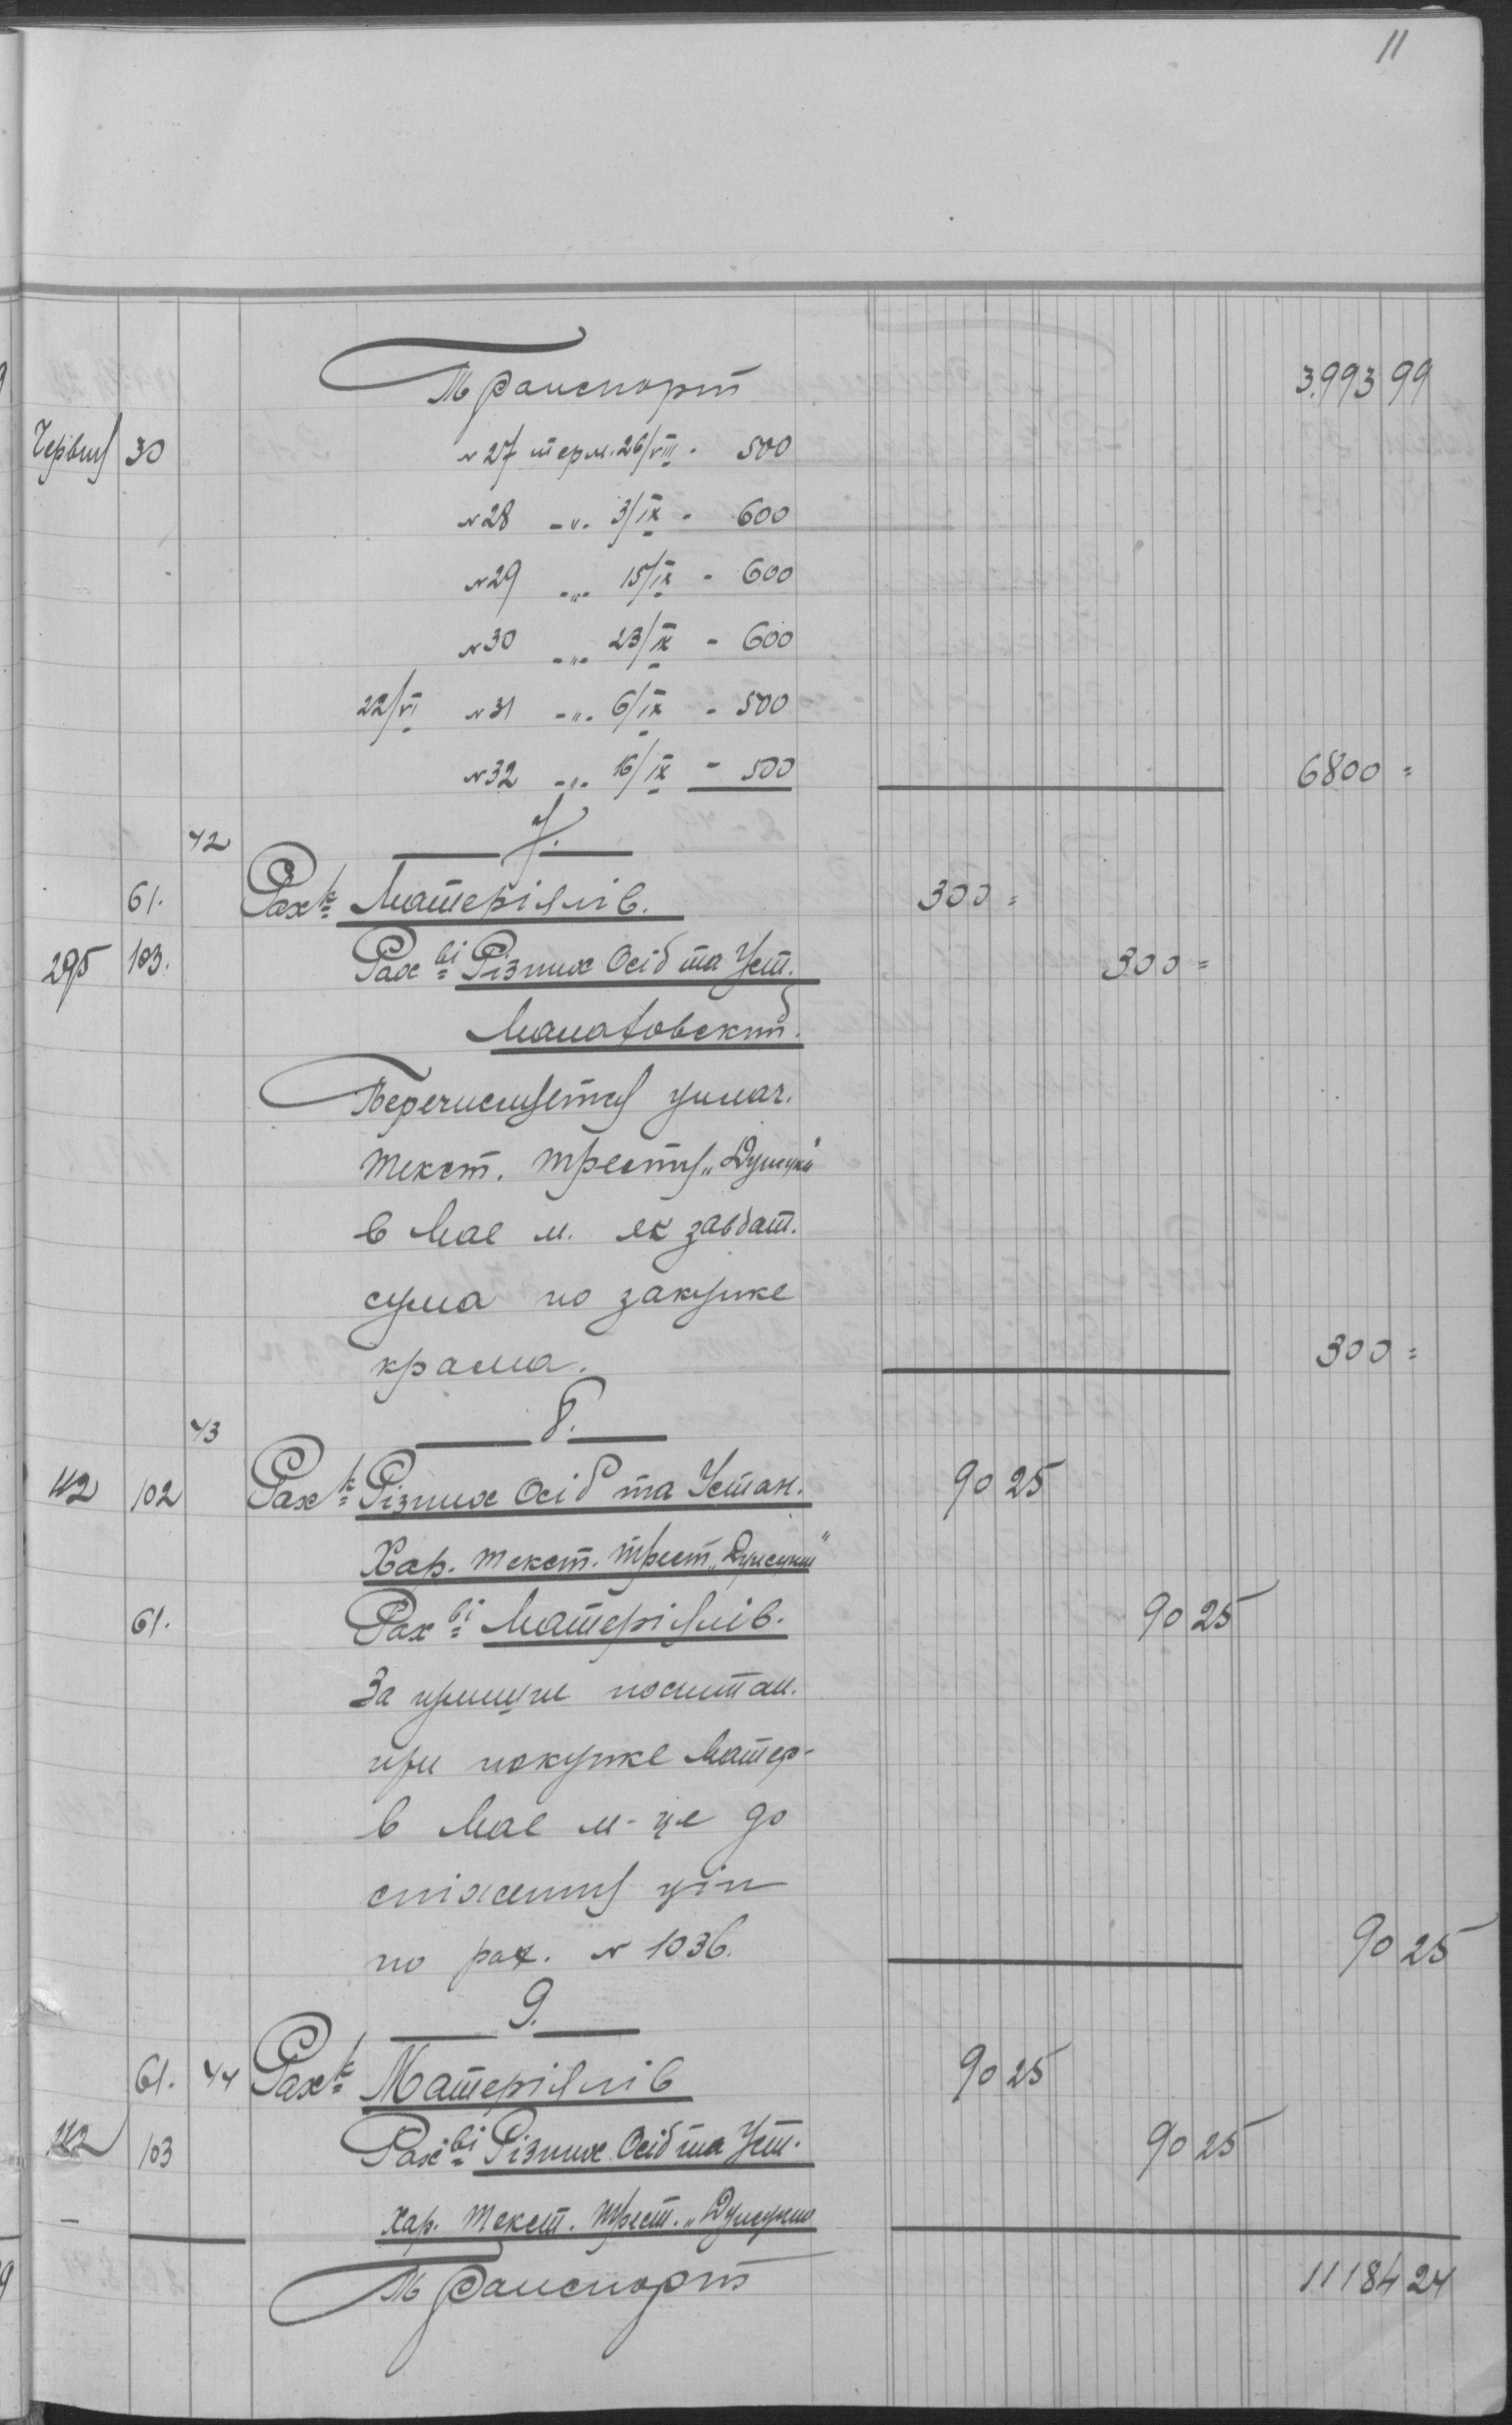 11
Транспорт 3.993 99
Червня 30 № 27 терм. 26/VIII - 500
№ 28 -"- 3/IX - 600
№ 29 -"- 15/IX - 600
№ 30 -"- 23/IX - 600
22/VI № 31 -"- 6/IX - 500
№ 32 -"- 16/IX - 500 6800 =
42 7.
61. Рах-к Матеріялів. 300 =
295 103. Рах-ві Різних Осіб та Уст. 300 =
Перечисляется
текст. тресту
в Мае м. як завдат.
сума по закупке
крама. 300 =
43 8.
112 102 Рах-к Різних Осіб та Устан. 90 25
Хар. текст. трест
61. Рах-ві Матеріялів. 90 25
За
при покупке Матер-
в Мае м-це до
цін
по рах. № 1036. 90 25
9.
61. 44 Рах-к Матеріялів 90 25
112 103 Рах-ві Різних Осіб та Уст. 90 25
Хар. текст. трест.
Транспорт 11184 24